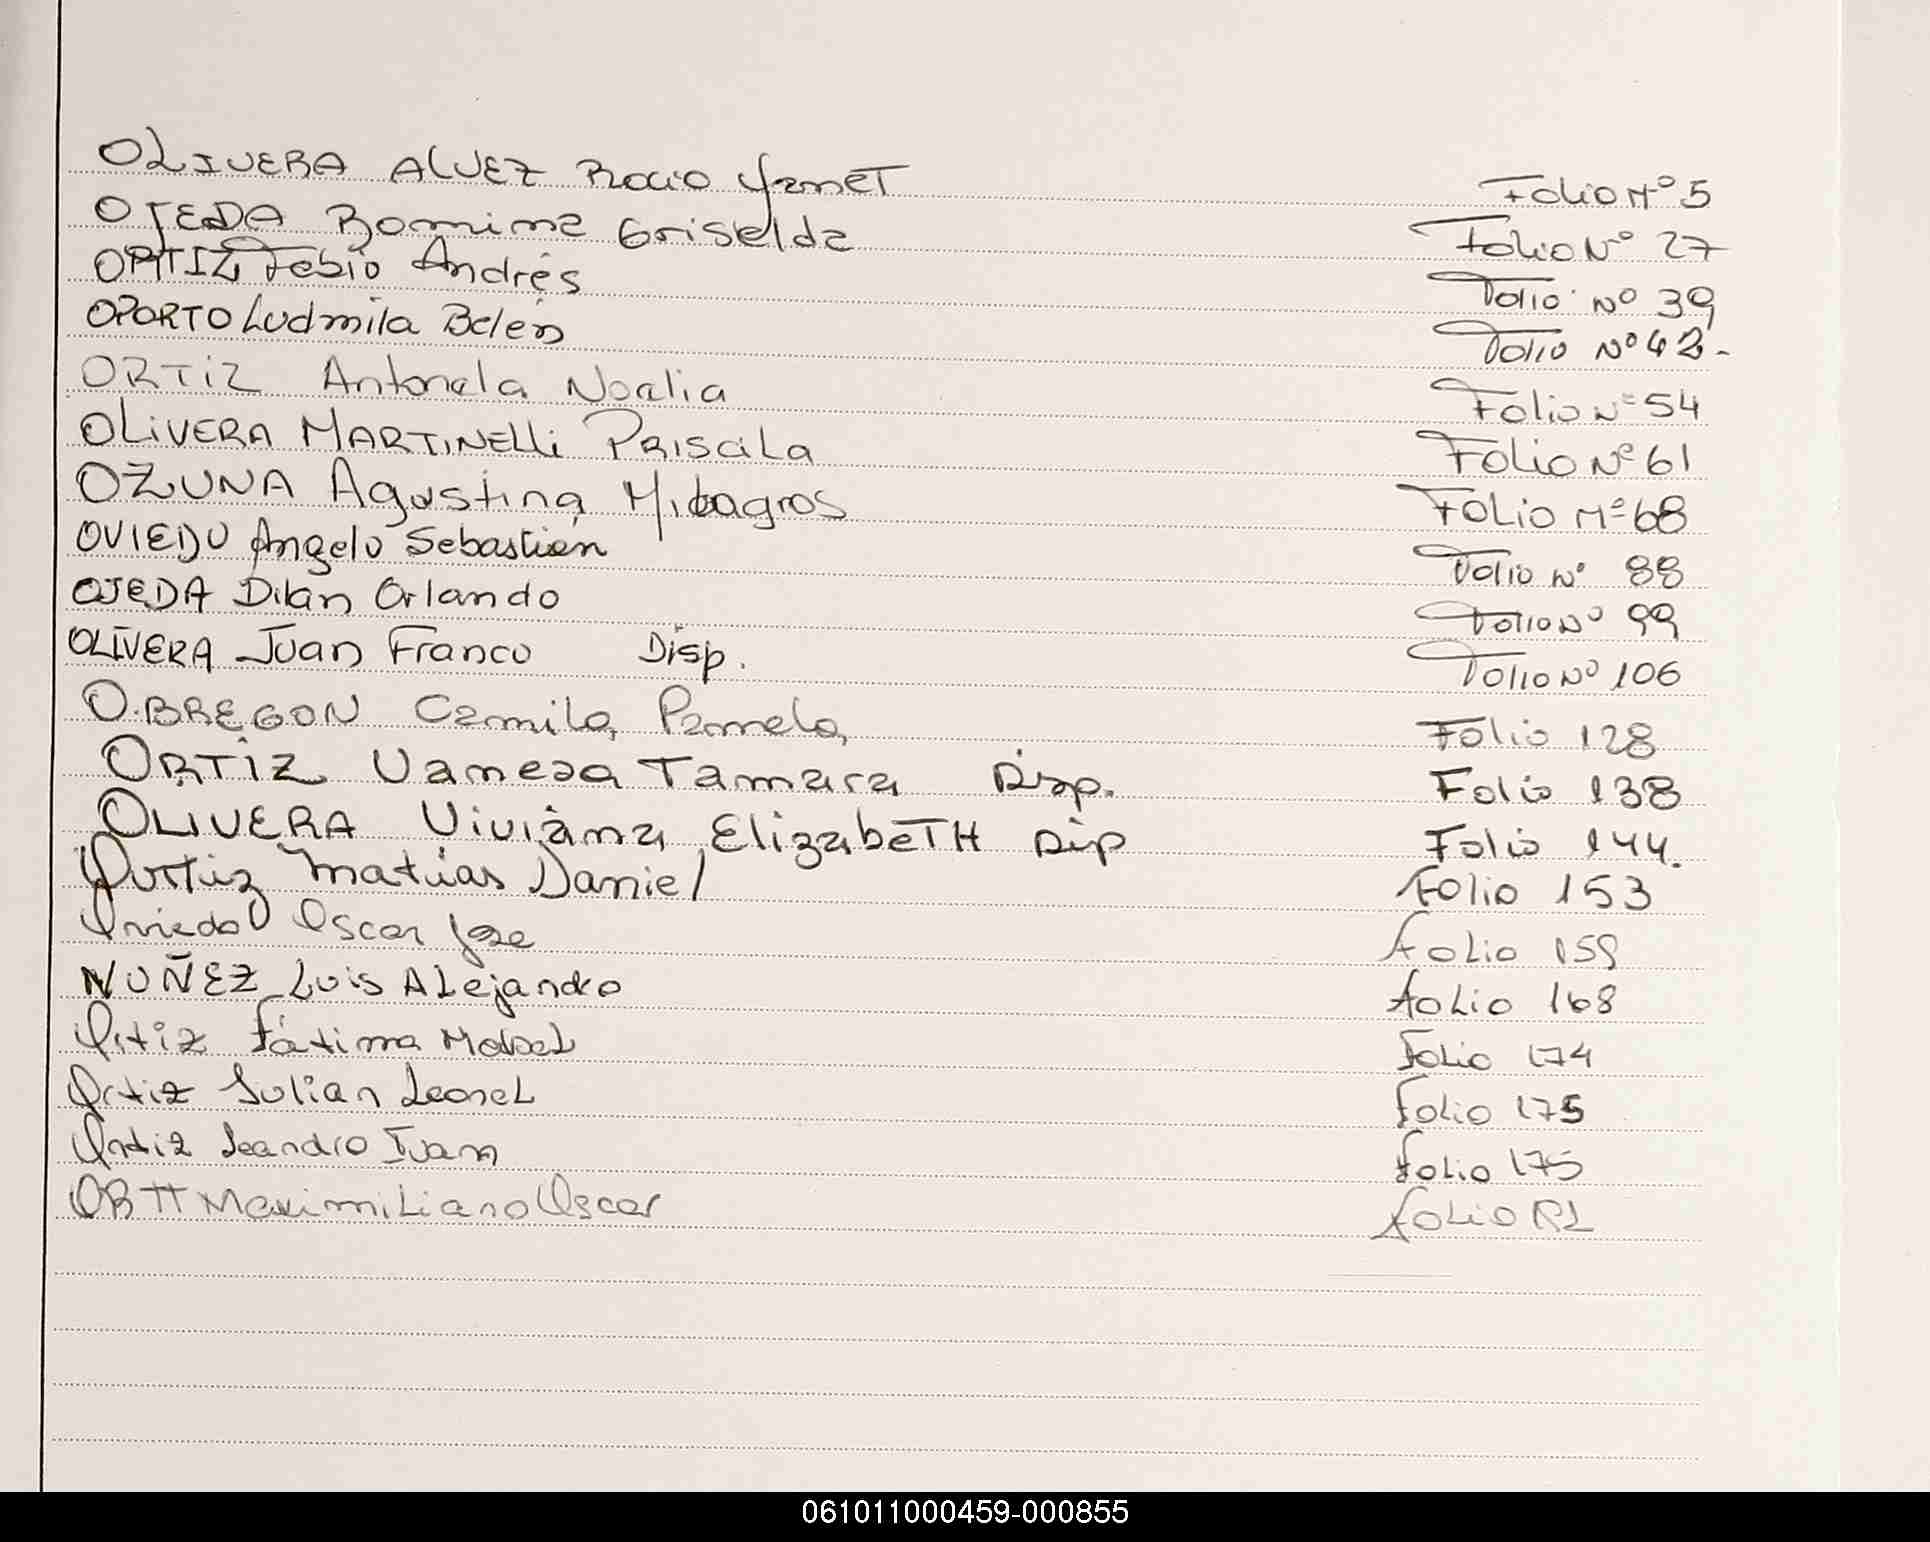 OLIVERA ALVEZ Rocio Yanet Folio Nº 5
OJEDA Romina Griselda Folio Nº 27
ORTIZ Fabio Andrés Folio Nº 39
OPORTO Ludmila Belén Folio Nº
ORTiZ Antonela Noalia Folio Nº 54
OLiVERA MARTINELLi PRISCiLa Folio Nº 61
OZUNA Agustina Milagros FOLio Nº 68
OVIEDO Angelo Sebastian Folio Nº 88
OJEDA Dilan Orlando Folio Nº 99
OLIVERA Juan Franco Disp. Folio Nº 106
OBREGON Camila Pamela Folio 128
ORTiZ Vanesa Tamara Disp. Folio 138
OLIVERA Viviana ElizabeTH Dip Folio 144.
Ortiz Matias Daniel Folio 153
Oviedo Oscar Jose Folio 159
NUÑEZ Luis ALejandro FoLio 168
Ortiz Fátima Mabel FoLio 174
Ortiz Julian LeoneL FoLio 175
Ortiz Leandro Ivan FoLio 175
Maximiliano Oscar FoLio
061011000459-000855